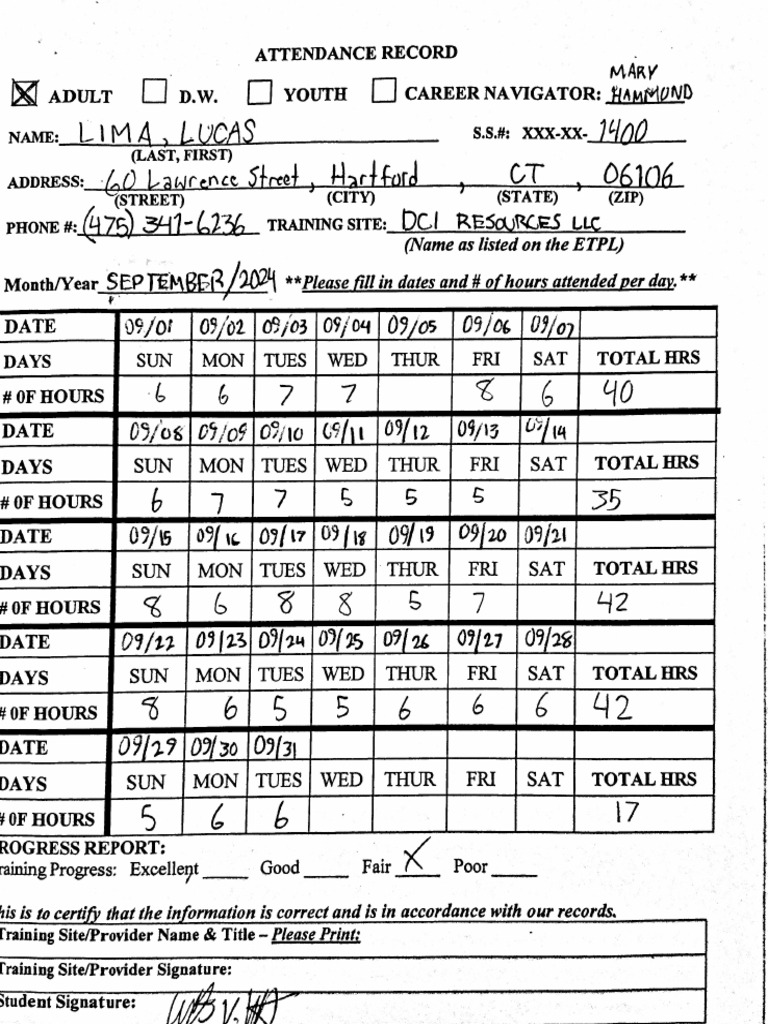 ATTENDANCE RECORD
ADULT D.W. YOUTH CAREER NAVIGATOR: MARY HAMMOND
NAME: LIMA, LUCAS S.S.#: XXX-XX-1400
(LAST, FIRST)
ADDRESS: 60 Lawrence Street, Hartford, CT, 06106
(STREET) (CITY) (STATE) (ZIP)
PHONE #: (475) 341-6236 TRAINING SITE: DCI RESOURCES LLC
(Name as listed on the ETPL)
Month/Year SEPTEMBER/2024 **Please fill in dates and # of hours attended per day.**
DATE 09/01 09/02 09/03 09/04 09/05 09/06 09/07
DAYS SUN MON TUES WED THUR FRI SAT TOTAL HRS
# 0F HOURS 6 6 7 7 8 6 40
DATE 09/08 09/09 09/10 09/11 09/12 09/13 09/14
DAYS SUN MON TUES WED THUR FRI SAT TOTAL HRS
# 0F HOURS 6 7 7 5 5 5 35
DATE 09/15 09/16 09/17 09/18 09/19 09/20 09/21
DAYS SUN MON TUES WED THUR FRI SAT TOTAL HRS
# 0F HOURS 8 6 8 8 5 7 42
DATE 09/22 09/23 09/24 09/25 09/26 09/27 09/28
DAYS SUN MON TUES WED THUR FRI SAT TOTAL HRS
# 0F HOURS 8 6 5 5 6 6 6 42
DATE 09/29 09/30 09/31
DAYS SUN MON TUES WED THUR FRI SAT TOTAL HRS
# 0F HOURS 5 6 6 17
ROGRESS REPORT:
raining Progress: Excellent Good Fair X Poor
his is to certify that the information is correct and is in accordance with our records.
Training Site/Provider Name & Title – Please Print:
Training Site/Provider Signature:
Student Signature: